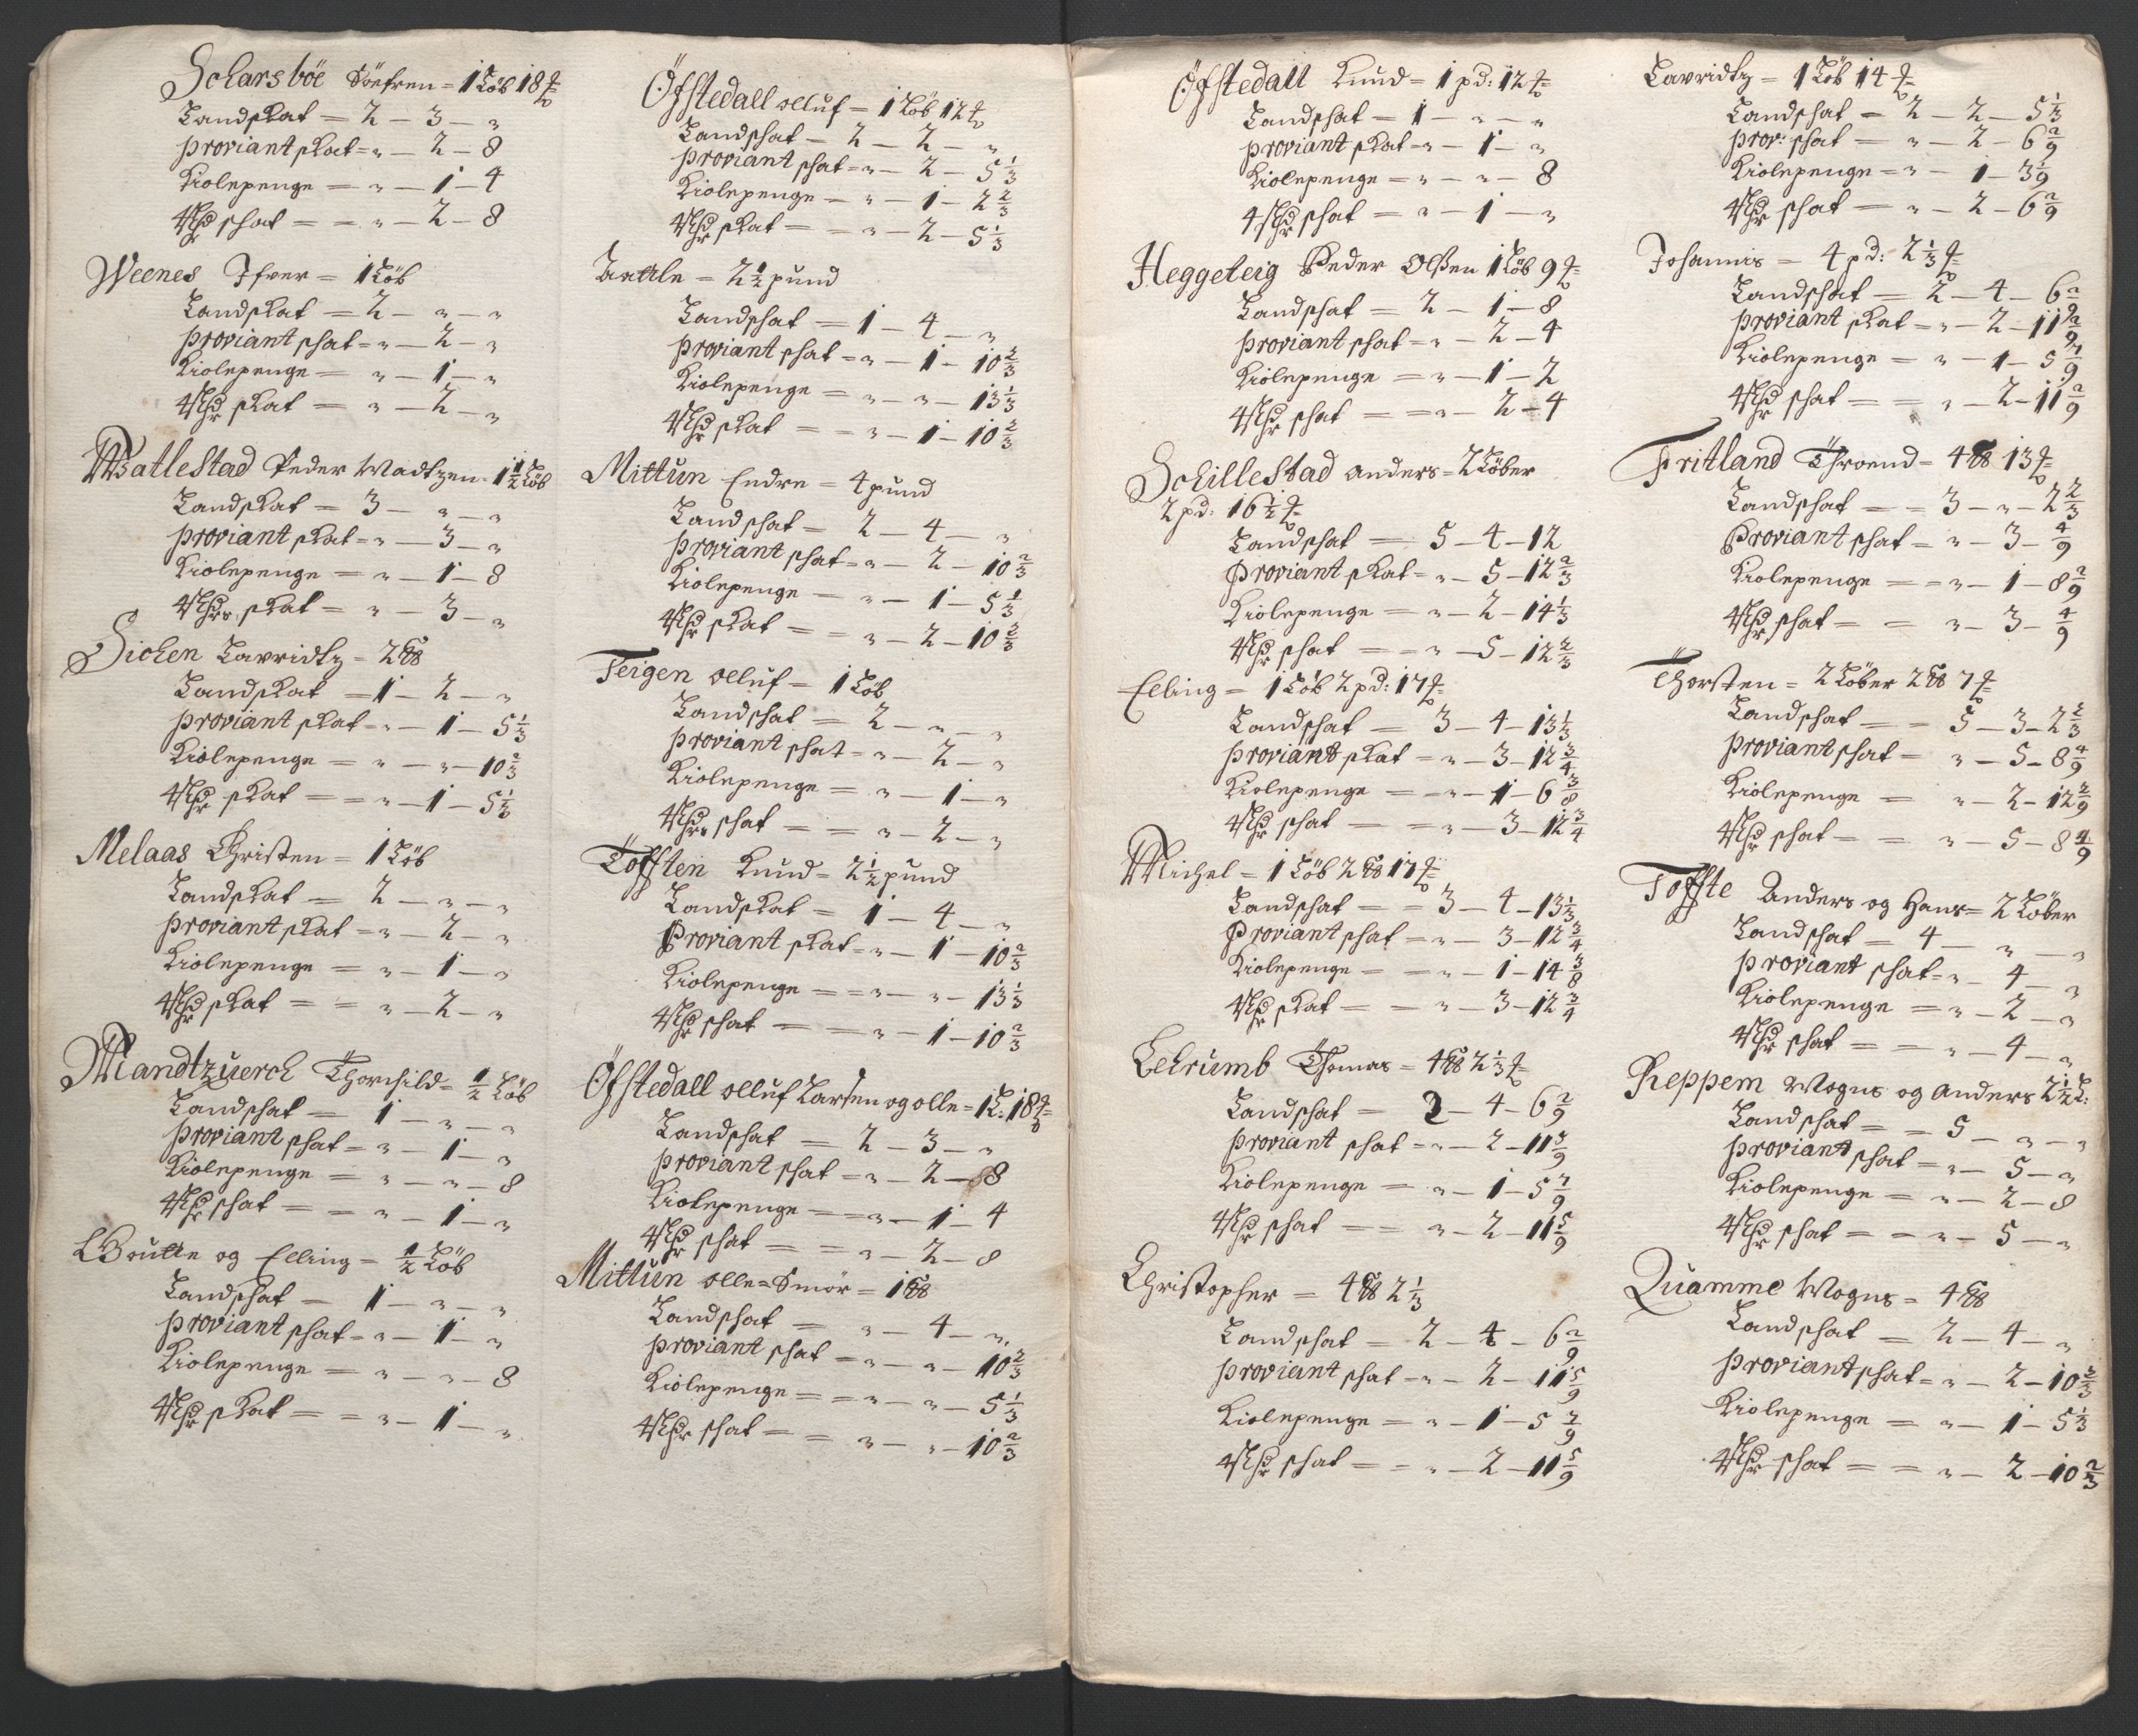 Scharsböe Söefren = 1 Löb 18 ℔
Landskat = 2 – 3 – „
proviantskat = „ – 2 – 8
Kiolepenge = „ – 1 – 4
4 Rdr schat = = „ – 2 – 8
Weenes Ifver = 1 Löb
Landskat = 2 – „ – „
proviant schat = „ – 2 – „
Kiolepenge = „ – 1 – „
4 Rdr skat = „ – 2 – „
Watlestad Peder Madtzen = 1 1/2 Löb
Landskat = 3 – „ – „
proviant skat = „ – 3 – „
Kiolepenge = „ – 1 – 8
4 Rdrs skat = „ – 3 – „
Sichen Lavridtz = 2 ℔
Landskat = 1 – 2 – „
proviant skat = „ – 1 – 5 1/3
Kiolepenge = „ – „ – 10 2/3
4 Rdr skat = = „ – 1 – 5 1/3
Melaas Christen = 1 Löb
Landskat = 2 – „ – „
proviant skat = „ – 2 – „
Kiolepenge = „ – 1 – „
4 Rdr skat = = „ – 2 – „
Mandtzuerch Thorchild = 1/2 Löb
Landschat = 1 – „ – „
proviant schat = „ – 1 – „
Kiolepenge = „ – „ – 8
4 Rdr schat = = „ – 1 – „
Goutte og Elling = 1/2 Löb
Landschat = 1 – „ – „
proviant schat = „ – 1 – „
Kiolepenge = „ – „ – 8
4 Rdr skat = = „ – 1 – „
Öfstedall olluf = 1 Löb 12 ℔
Landschat = 2 – 2 – „
proviant schat = „ – 2 – 5 1/3
Kiolepenge = „ – 1 – 2 2/3
4 Rdr skat = = „ – 2 – 5 1/3
= 2 1/2 pund
Landschat = 1 – 4 – „
proviant schat = „ – 1 – 10 2/3
Kiolepenge = „ – „ – 13 1/3
4 Rdr skat = = „ – 1 – 10 2/3
Mittun Endre = 4 pund
Landschat = 2 – 4 – „
proviant schat = „ – 2 – 10 2/3
Kiolepenge = „ – 1 – 5 1/3
4 Rdr skat = = „ – 2 – 10 2/3
Teigen olluf = 1 Löb
Landschat = 2 – „ – „
proviant schat = „ – 2 – „
Kiolepenge = „ – 1 – „
4 Rdrs schat = = „ – 2 – „
Tofften Knud = 2 1/2 pund
Landskat = 1 – 4 – „
Proviant skat = „ – 1 – 10 2/3
Kiolepenge = = „ – „ – 13 1/3
4 Rdr schat = = „ – 1 – 10 2/3
Öfstedall olluf Larsen og olle = 1 L: 18 ℔
Landschat = 2 – 3 – „
proviant schat = „ – 2 – 8
Kiolepenge = = „ – 1 – 4
4 Rdr schat = = „ – 2 – 8
Mittun olle = Smör = 1 ℔
Landschat = „ – 4 – „
proviant schat = „ – „ – 10 2/3
Kiolepenge = = „ – „ – 5 1/3
4 Rdr schat = = „ – „ – 10 2/3
Öfstedall Knud = 1 pd: 12 ℔
Landschat = 1 – „ – „
proviant skat = „ – 1 – „
Kiolepenge = „ – „ – 8
4 Rdr schat = „ – 1 – „
Heggeteig Peder Olßen 1 Löb 9 ℔
Landschat = 2 – 1 – 8
proviant schat = „ – 2 – 4
Kiolepenge = „ – 1 – 2
4 Rdr schat = = „ – 2 – 4
Schillestad anders = 2 Löber
2 pd: 16 1/2 ℔
Landschat = 5 – 4 – 12
Proviant skat = „ – 5 – 12 2/3
Kiolepenge = „ – 2 – 14 1/3
4 Rdr schat = = „ – 5 – 12 2/3
Elling = 1 Löb 2 pd: 17 ℔
Landschat = 3 – 4 – 13 1/3
proviant skat = „ – 3 – 12 3/4
Kiolepenge = „ – 1 – 6 3/8
4 Rdr schat = = „ – 3 – 12 3/4
Michel = 1 Löb 2 ℔ 17 ℔
Landschat = = 3 – 4 – 13 1/3
Proviant schat = „ – 3 – 12 3/4
Kiolepenge = = „ – 1 – 14 3/8
4 Rdr skat = = „ – 3 – 12 3/4
Lekrumb Thomas = 4 ℔ 2 1/3 ℔
Landschat = 2 – 4 – 6 2/9
proviant schat = „ – 2 – 11 5/9
Kiolepenge = „ – 1 – 5 7/9
4 Rdr schat = = „ – 2 – 11 5/9
Christopher = 4 ℔ 2 1/3
Landschat = 2 – 4 – 6 2/9
proviant schat = „ – 2 – 11 5/9
Kiolepenge = „ – 1 – 5 7/9
4 Rdr schat = = „ – 2 – 11 5/9
Lavridtz = 1 Löb 14 ℔
Landschat = 2 – 2 – 5 1/3
prov: schat = „ – 2 – 6 2/9
Kiolepenge = „ – 1 – 3 1/9
4 Rdr schat = „ – 2 – 6 2/9
Johannis = 4 pd: 2 1/3 ℔
Landschat = 2 – 4 – 6 2/9
proviant skat = „ – 2 – 11 2/9
Kiolepenge = „ – 1 – 5 7/9
4 Rdr schat = = „ – 2 – 11 2/9
Fritland Throend = 4 ℔ 13 ℔
Landschat = = 3 – „ – 2 2/3
Proviant schat = „ – 3 – 4/9
Kiolepenge = = „ – 1 – 8 2/9
4 Rdr schat = = „ – 3 – 4/9
Thorsten = 2 Löber 2 ℔ 7 ℔
Landschat = = 5 – 3 – 2 2/3
proviant schat = „ – 5 – 8 4/9
Kiolepenge = „ – 2 – 12 2/9
4 Rdr schat = = „ – 5 – 8 4/9
Toffte Anders og Hans = 2 Löber
Landschat = 4 – „ – „
proviant schat = „ – 4 – „
Kiolepenge = „ – 2 – „
4 Rdr schat = = „ – 4 – „
Reppem Mogns og Anders 2 1/2 L:
Landschat = = 5 – „ – „
proviant schat = „ – 5 – „
Kiolepenge = „ – 2 – 8
4 Rdr schat = = „ – 5 – „
Quamme Mogns = 4 ℔
Landschat = 2 – 4 – „
proviant schat = „ – 2 – 10 2/3
Kiolepenge = „ – 1 – 5 1/3
4 Rdr schat = = „ – 2 – 10 2/3